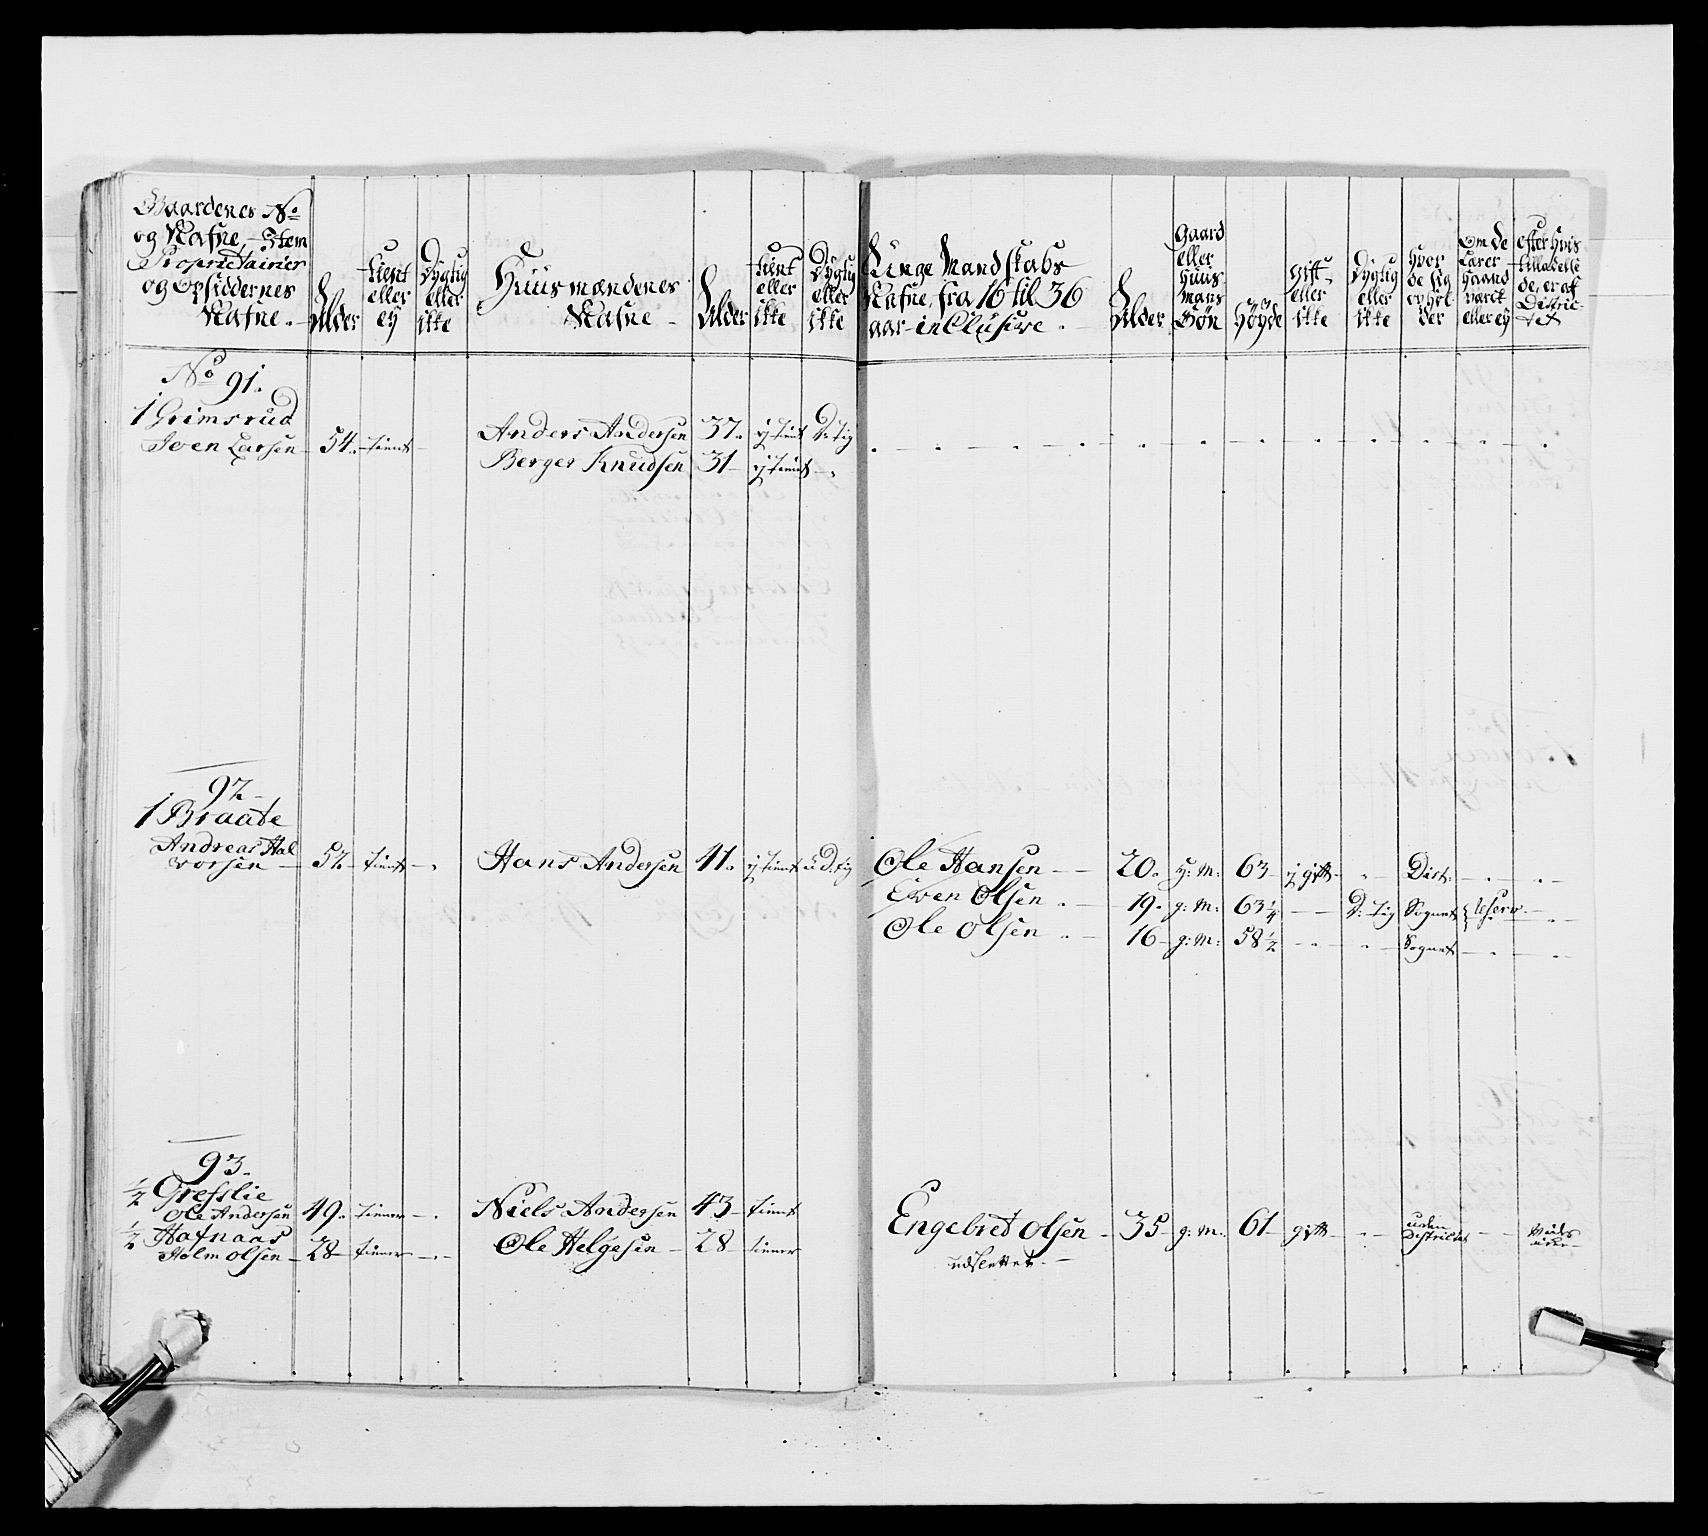 Gaardenes No og Nafne, Item Proprietairer og Opsiddernes Nafne.
Alder
tient eller ey
Dygtig eller ikke
Huusmændenes Nafne
Alder
tient eller ikke
Dygtig eller ikke
Unge Mandskabs Nafne, fra 16 til 36 aar inclusive.
Alder
Gaard eller Huus Mans Søn
Høyde
gift eller ikke
Dygtig eller ikke
Hvor de sig opholder
Om de Lærer Haandværck eller ey
efter hvis tilladelse de er af Districtet
No 91.
1 Grimsrud
Iven Larsen 54. tient Anders Andersen 37. ej tient D:tig
Berger Knudsen 31 ej tient
92
1 Braate
Andreas Hal
vorsen 52 tient Hans Andersen 41. ej tient u D:tig Ole Hansen 20. h: M: 63 ej gift Dist:
Even Olsen 19. g: M: 63 1/4 D: tig Sognet
Ole Olsen 16 g: M: 58 1/2 Sognet
93.
1/2 Gresslie
Ole Andersen 49. tiener Niels Andersen 43 tient Engebret Olsen 35 g: M: 61 gift uden Districtet
1/2 Hafnaas
Holm Olsen 28 tiener Ole Helgesen 28 tiener udslettet.